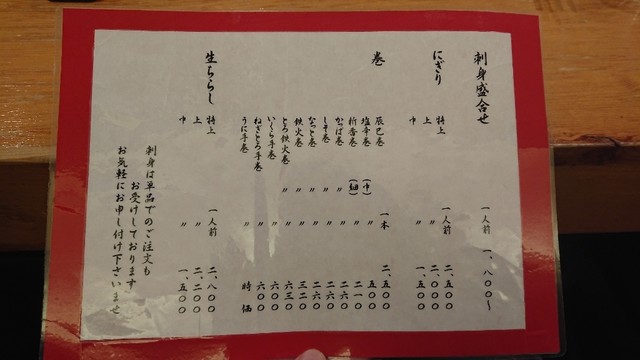 刺身盛合せ 一人前 一、八〇〇〜
にぎり 特上 一人前 二、五〇〇
上 〃 二、〇〇〇
中 〃 一、五〇〇
巻 辰巳巻 一本 二、五〇〇
塩辛巻 (中) 〃 五〇〇
新香巻 (細) 〃 二一〇
かっぱ巻 〃 〃 二六〇
しそ巻 〃 〃 二六〇
なっと巻 〃 〃 二六〇
鉄火巻 〃 〃 三二〇
とろ鉄火巻 〃 〃 六三〇
いくら手巻 〃 六〇〇
ねぎとろ手巻 〃 六〇〇
うに手巻 〃 時価
生ちらし 特上 一人前 二、八〇〇
上 〃 二、二〇〇
中 〃 一、五〇〇
刺身は単品でのご注文も
お受けしております
お気軽にお申し付け下さいませ